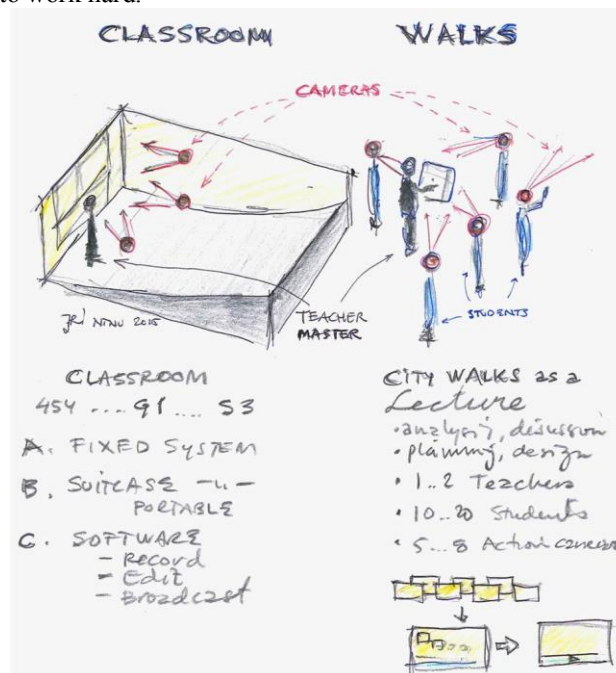 to work hard.
CLASSROOM
WALKS
CAMERAS
TEACHER
MASTER
STUDENTS
NTNU 2015
CLASSROOM
454 .... G1 .... S3
A. FIXED SYSTEM
B. SUITCASE -"-
PORTABLE
C. SOFTWARE
- Record
- Edit
- Broadcast
CITY WALKS as a
Lecture
• analysis, disussion
• planning, design
• 1..2 Teachers
• 10..20 Students
• 5...8 Action